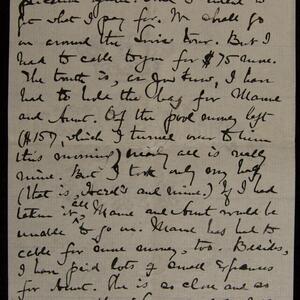 get what I pay for. We shall go
on around the Swiss tour. But I
had to cable to you for $75 more.
The truth is, as you know, I have
had to hold the bag for Mame
and Aunt. Of the pool money left
($157, which I turned over to him
this morning) nearly all is really
mine. But I took only my half
(that is, and mine) If I had
taken it all, Mame and Aunt would be
unable to go on. Mame has had to
cable for some money, too. Besides,
I have paid lots of small expenses
for Aunt. She is as close and as